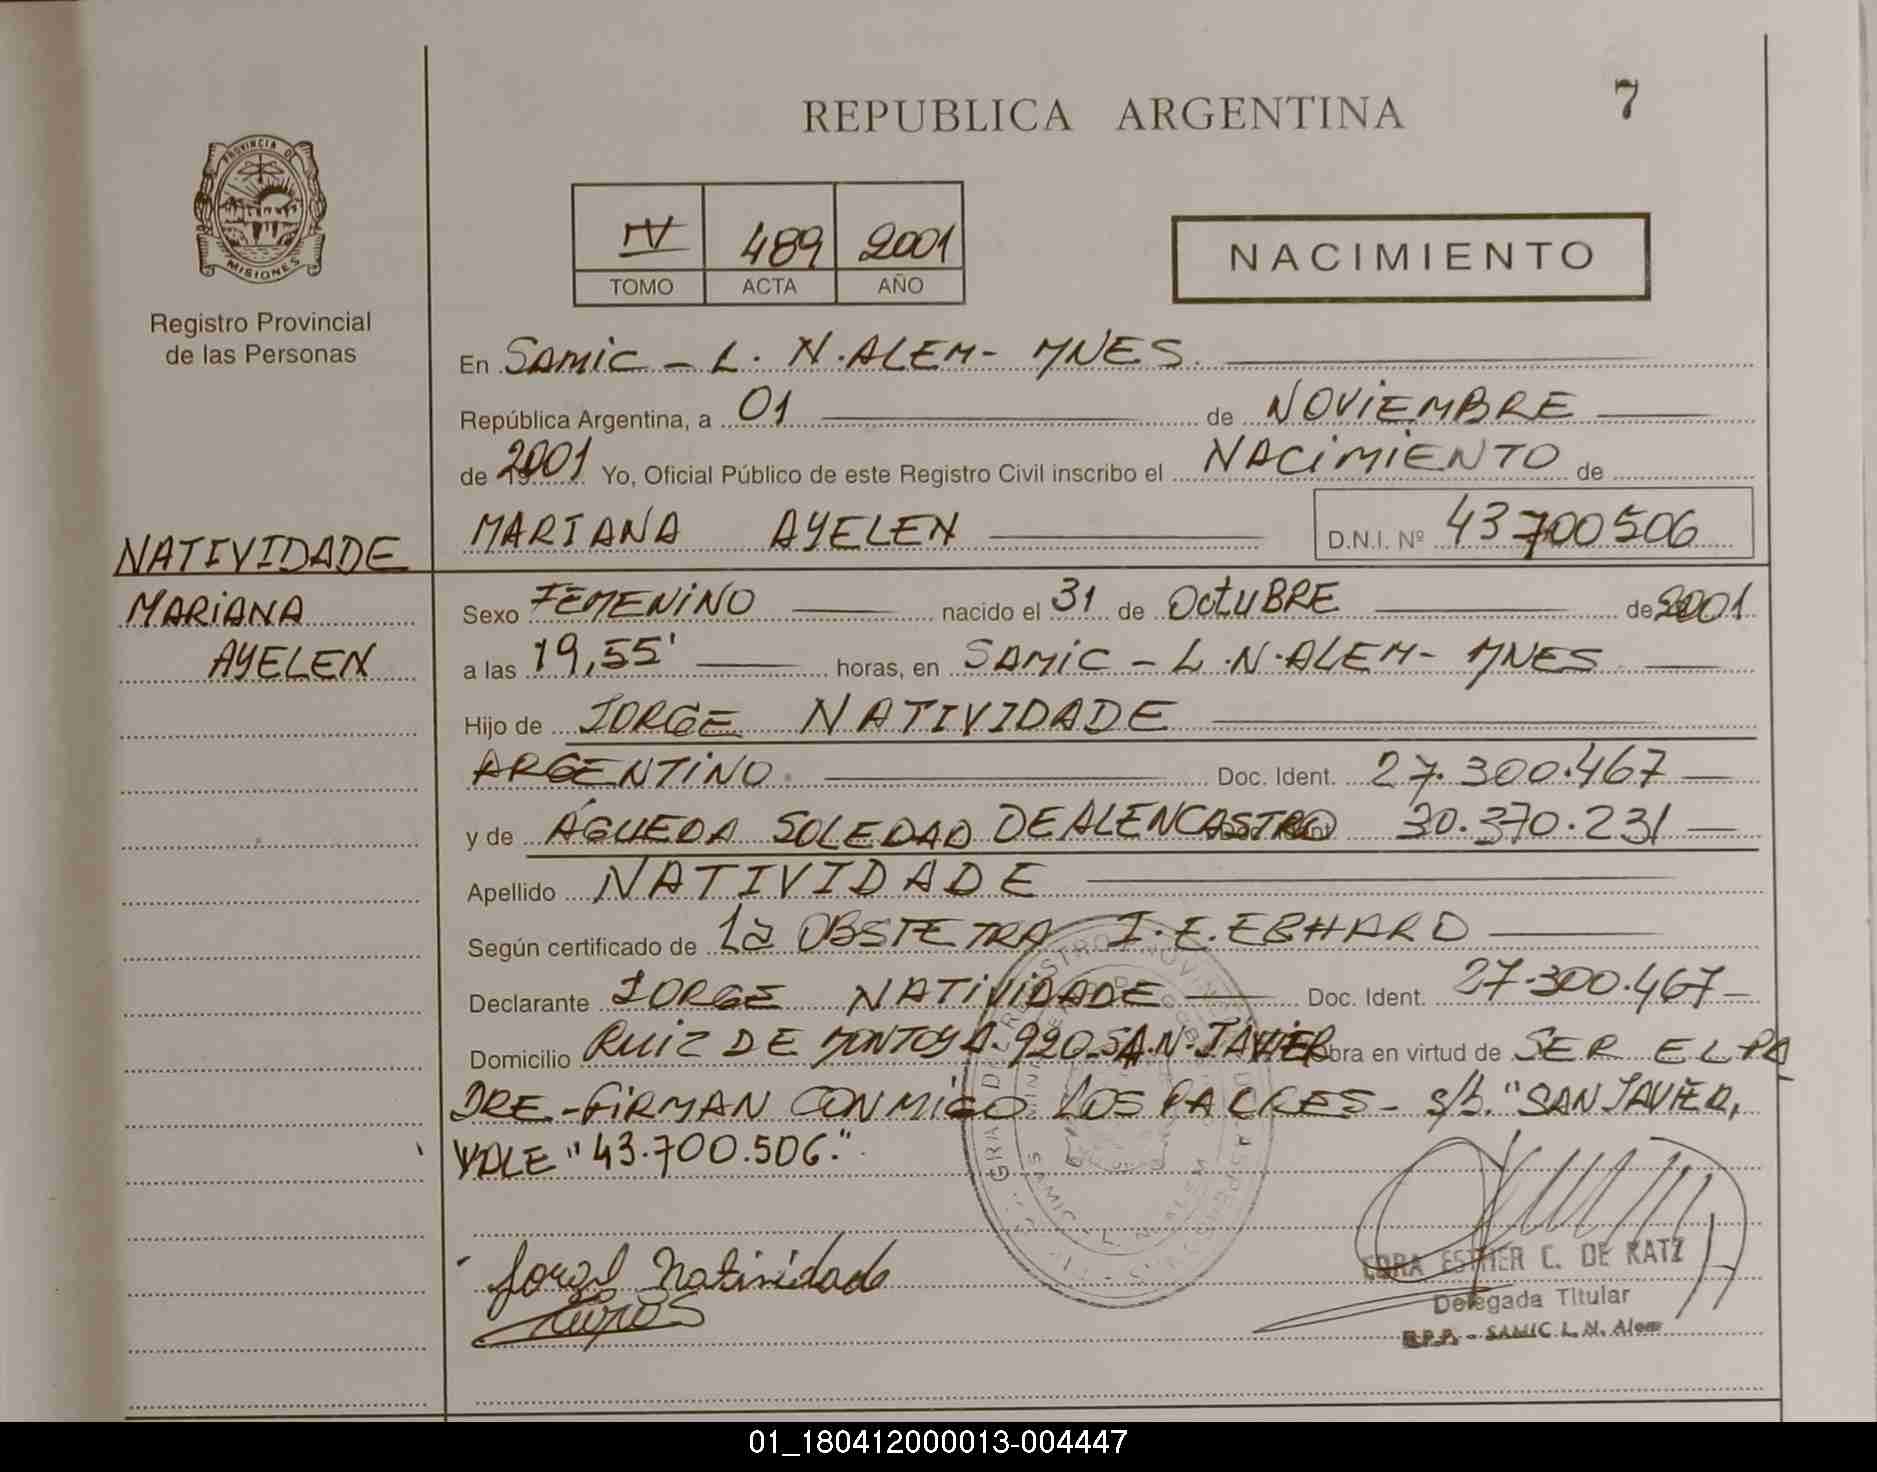 7
REPUBLICA ARGENTINA
PROVINCIA DE
MISIONES
Registro Provincial
de las Personas
IV 489 2001
TOMO ACTA AÑO
NACIMIENTO
En SAMIC - L. N. ALEM - MNES
República Argentina, a 01 de NOVIEMBRE
de 2001 Yo, Oficial Público de este Registro Civil inscribo el NACIMIENTO de
MARIANA AYELEN D.N.I. Nº 43700506
NATIVIDADE
MARIANA
AYELEN
Sexo FEMENINO nacido el 31 de OCTUBRE de 2001
a las 19,55' horas, en SAMIC - L.N. ALEM - MNES
Hijo de JORGE NATIVIDADE
ARGENTINO Doc. Ident. 27.300.467
y de ÁGUEDA SOLEDAD DEALENCASTRO 30.370.231
Apellido NATIVIDADE
Según certificado de La OBSTETRA I. E. EBHARD
Declarante JORGE NATIVIDADE Doc. Ident. 27.300.467
Domicilio RUIZ DE MONTOYA 920 SAN JAVIER obra en virtud de SER EL PA
DRE.-FIRMAN CONMIGO LOS PADRES - s/b. "SAN JAVIER,
VALE "43.700.506."
Jorge Natividade
CORA ESTHER C. DE KATZ
Delegada Titular
R.P.P. - SAMIC L. N. Alem
01_180412000013-004447